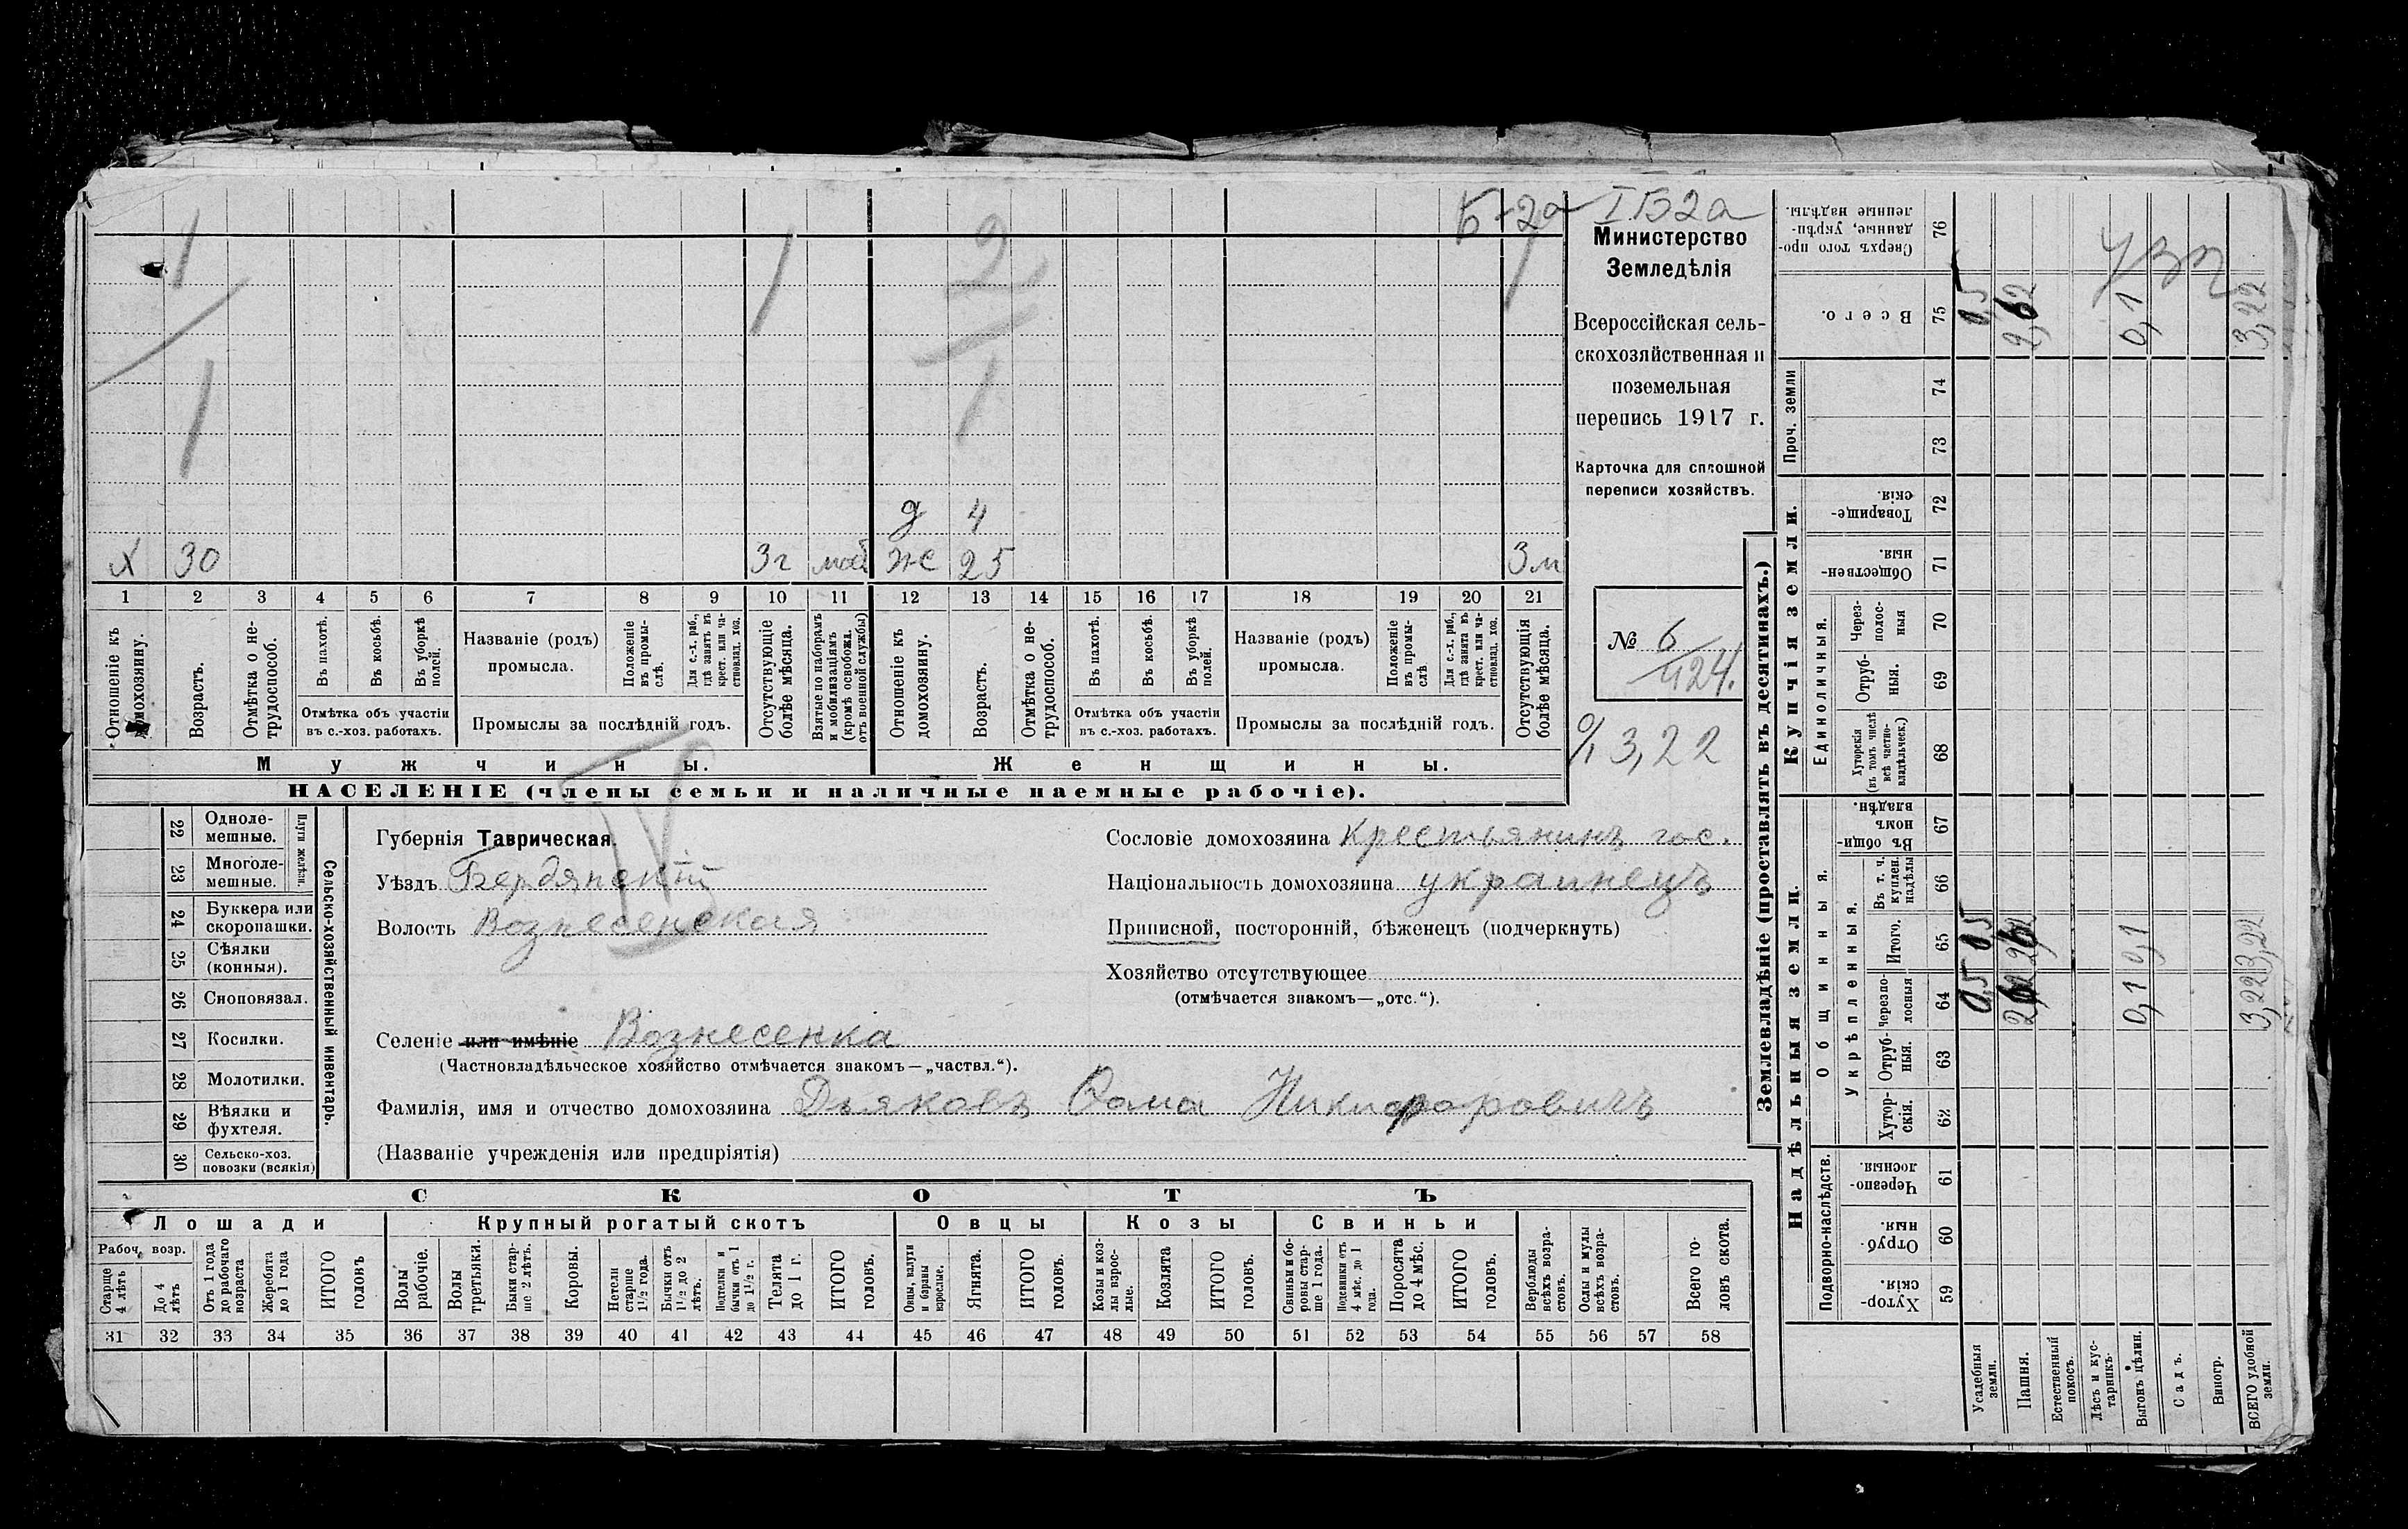 Б-2а
IБ2а
1
1
1
2
1
1
д 4
х 30 3г моб же 25 3м
1 2 3 4 5 6 7 8 9 10 11 12 13 14 15 16 17 18 19 20 21
Отношеніе къ домохозяину.
Возрастъ.
Отмѣтка о не-трудоспособ.
Въ пахотѣ.
Въ косьбѣ.
Въ уборкѣ полей.
Отмѣтка объ участіи
въ с.-хоз. работахъ.
Названіе (родъ)
промысла.
Положеніе въ промы-слѣ.
Для с.-х. раб., гдѣ занятъ въ крест. или ча-стновлад. хоз.
Промыслы за послѣдній годъ.
Отсутствующіе болѣе мѣсяца.
Взятые по наборамъ и мобилизаціямъ (кромѣ освобожд. отъ военной службы)
Отношеніе къ домохозяину.
Возрастъ.
Отмѣтка о не-трудоспособ.
Въ пахотѣ.
Въ косьбѣ.
Въ уборкѣ полей.
Отмѣтка объ участіи
въ с.-хоз. работахъ.
Названіе (родъ)
промысла.
Положеніе въ промы-слѣ
Для с.-х. раб., гдѣ занята въ крест. или ча-стновлад. хоз.
Промыслы за послѣдній годъ.
Отсутствующія болѣе мѣсяца.
Мужчины.
Женщины.
НАСЕЛЕНІЕ (члены семьи и наличные наемные рабочіе).
Министерство
Земледѣлія
Всероссійская сель-
скохозяйственная и
поземельная
перепись 1917 г.
Карточка для сплошной
переписи хозяйствъ.
№ 6
424.
3,22
IV
22 Одноле-мешные.
23 Многоле-мешные.
Плуги желѣзн.
24 Буккера или скоропашки.
25 Сѣялки (конныя).
26 Сноповязал.
27 Косилки.
28 Молотилки.
29 Вѣялки и фухтеля.
30 Сельско-хоз. повозки (всякія)
Сельско-хозяйственный инвентарь.
Губернія Таврическая.
Уѣздъ Бердянскій
Волость Вознесенская
Селеніе или имѣніе Вознесенка
(Частновладѣльческое хозяйство отмѣчается знакомъ—„частвл.“).
Фамилія, имя и отчество домохозяина Дьяковъ Фома Никифоровичъ
(Названіе учрежденія или предпріятія)
Сословіе домохозяина крестьянинъ гос.
Національность домохозяина украинецъ
Приписной, посторонній, бѣженецъ (подчеркнуть)
Хозяйство отсутствующее
(отмѣчается знакомъ—„отс.“).
СКОТЪ
Лошади
Крупный рогатый скотъ
Овцы
Козы
Свиньи
Рабоч. возр.
Старше 4 лѣтъ
До 4 лѣтъ
Отъ 1 года до рабочаго возраста
Жеребята до 1 года
ИТОГО головъ
Волы рабочіе.
Волы третьяки.
Быки стар-ше 2 лѣтъ.
Коровы.
Нетели старше 1½ года.
Бычки отъ 1½ до 2 лѣтъ.
Подтелки и бычки отъ 1 до 1½ г.
Телята до 1 г.
ИТОГО головъ.
Овцы, валухи и бараны взрослые.
Ягнята.
ИТОГО головъ.
Козы и коз-лы взрос-лые.
Козлята
ИТОГО головъ.
Свиньи и бо-ровы стар-ше 1 года.
Подсвинки отъ 4 мѣс. до 1 года.
Поросята до 4 мѣс.
ИТОГО головъ.
Верблюды всѣхъ возра-стовъ.
Ослы и мулы всѣхъ возра-стовъ.
Всего го-ловъ скота.
31 32 33 34 35 36 37 38 39 40 41 42 43 44 45 46 47 48 49 50 51 52 53 54 55 56 57 58
Землевладѣніе (проставлять въ десятинахъ.)
Надѣльныя земли.
Купчія земли.
Проч. земли
Подворно-наслѣдств.
Общинныя.
Укрѣпленныя.
Единоличныя.
Хутор-скія. 59
Отруб-ныя. 60
Черезпо-лосныя. 61
Хутор-скія. 62
Отруб-ныя. 63
Черезпо-лосныя 64
Итого. 65
Въ т. ч. куплен. надѣлы 66
Въ общи-номъ владѣн. 67
Хуторскія (въ томъ числѣ всѣ частно-владѣльческ.) 68
Отруб-ныя. 69
Через-полос-ныя 70
Обществен-ныя. 71
Товарище-скія. 72
73
74
Всего. 75
Сверхъ того про-данные, укрѣп-ленные надѣлы. 76
Усадебныя земли. 0,5 0,5 0,5
Пашня. 2,62 2,62 2,62
Естественный покосъ.
Лѣсъ и кус-тарникъ.
Выгонъ цѣлин. 0,1 0,1 0,1
Садъ.
Виногр.
ВСЕГО удобной земли. 3,22 3,22 3,22